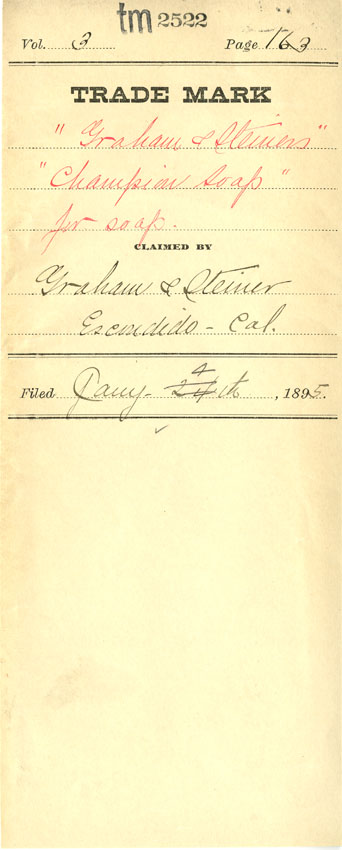 tm 2522
Vol. 3 Page 163
TRADE MARK
"Graham & Steiners"
"Champion Soap"
for soap.
CLAIMED BY
Graham & Steiner
Escondido - Cal.
Filed Jany - 4th, 1895.